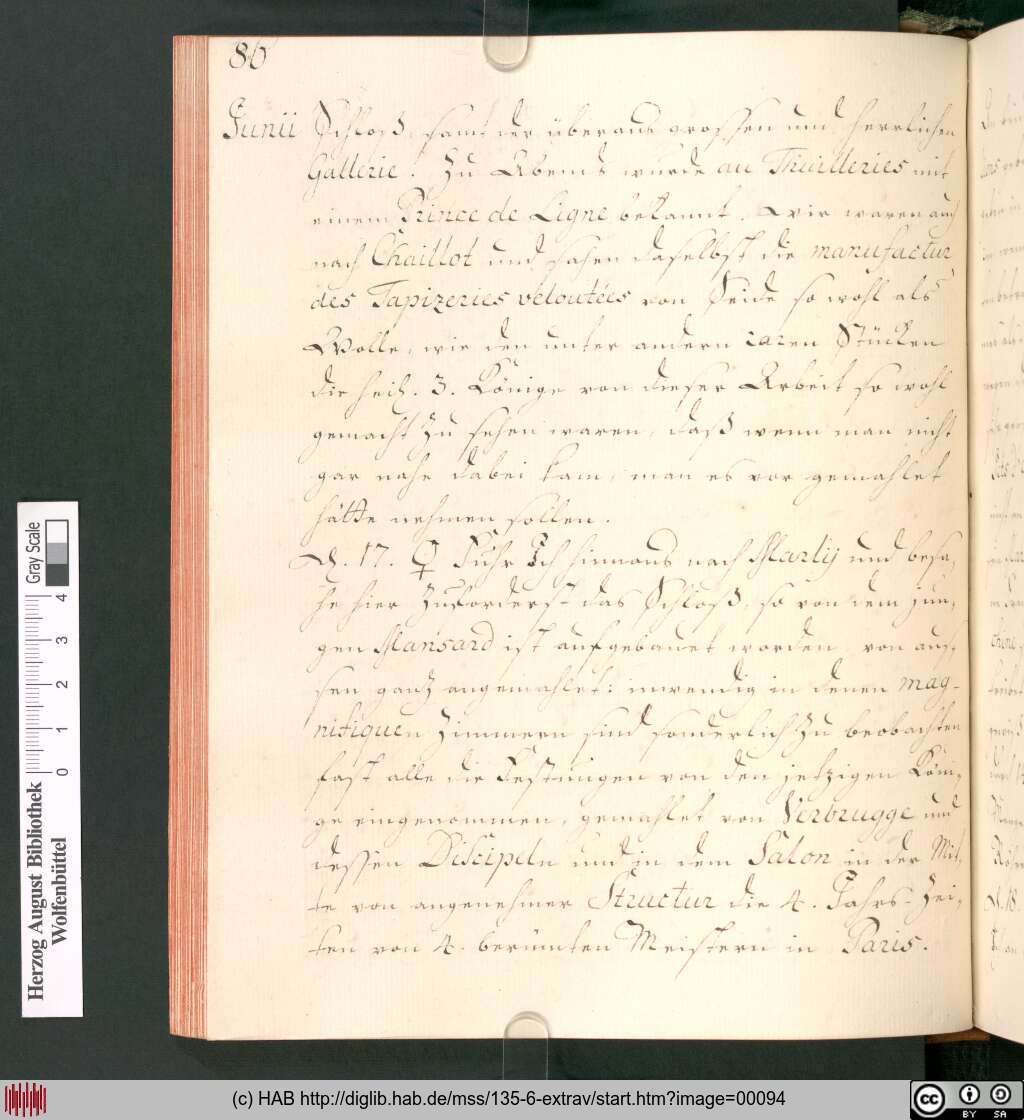 86
Junii Schloß, samt der überaus grossen und herrlichen
Gallerie. Zu Abends wurde au Thuilleries mit
einem Prince de Ligne bekannt. Wir waren auch
nach Chaillot und sahen daselbst die manufactur
des Tapizeries veloutées von Seide so wohl als
Wolle, wie den unter andern raren Stücken
die heil. 3. Könige von dieser Arbeit so wohl
gemacht zu sehen waren, daß wenn man nicht
gar nahe dabei kam, man es vor gemahlet
hätte nehmen sollen.
D. 17. ♀ Fuhr Ich hinnaus nach Marlij und besa,
he hier zuforderst das Schloß, so von dem jun,
gen Mansard ist aufgebauet worden, von aus,
sen ganz angemahlet: inwendig in denen mag-
nifiquen Zimmern sind sonderlich zu beobachten
fast alle die Festungen von den jetzigen Köni,
ge eingenommen, gemahlet von Verbrugge und
dessen Discipeln und in dem Salon in der Mit,
te von angenehmer Structur die 4. Jahrs-Zei,
ten von 4. berümten Meistern in Paris.
Herzog August Bibliothek
Wolfenbüttel
0 1 2 3 4
Gray Scale
(c) HAB http://diglib.hab.de/mss/135-6-extrav/start.htm?image=00094
cc BY SA